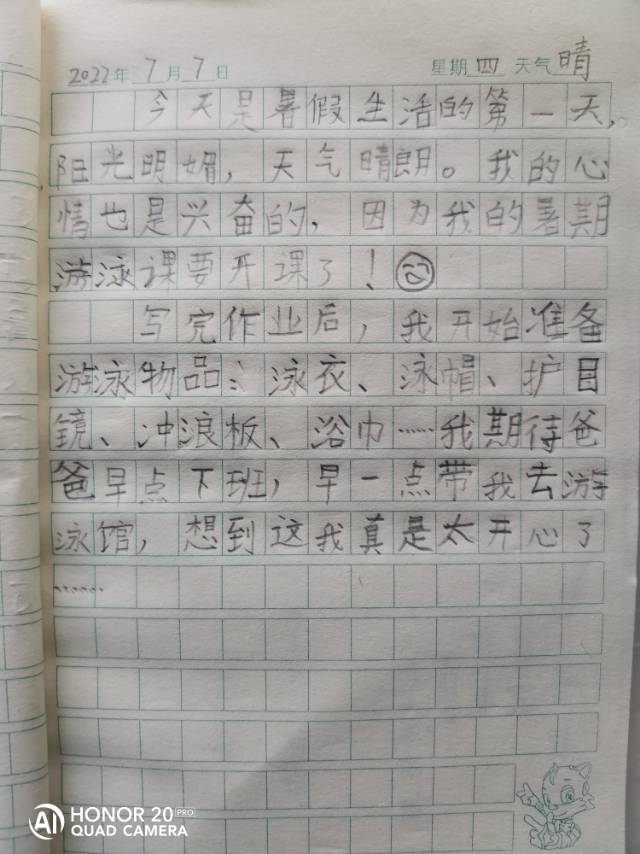 2022年7月7日 星期四 天气晴
今天是暑假生活的第一天，
阳光明媚，天气晴朗。我的心
情也是兴奋的，因为我的暑期
游泳课要开课了！
写完作业后，我开始准备
游泳物品：泳衣、泳帽、护目
镜、冲浪板、浴巾……我期待爸
爸早点下班，早一点带我去游
泳馆，想到这我真是太开心了
……
AI HONOR 20 PRO
QUAD CAMERA